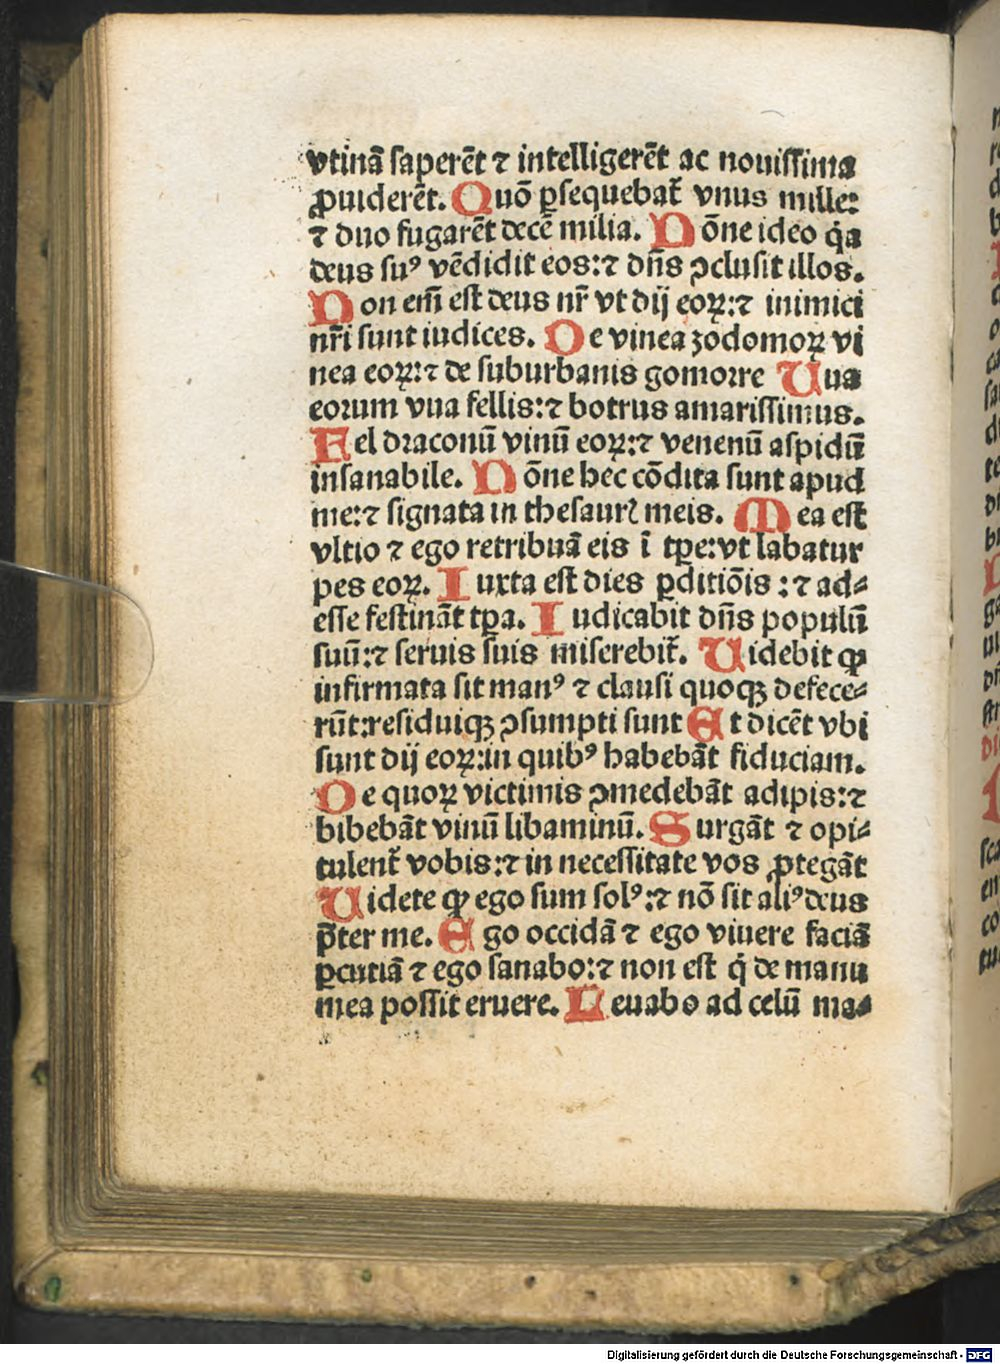 vtinā ſaperēt ⁊ intelligerēt ac nouiſſima
ꝓuiderēt. Quō ꝑſequebat᷑ vnus mille:
⁊ duo fugarēt decē milia. Nōne ideo q̇a
deus ſuꝰ vēdidit eos:⁊ dn̄s ꝯcluſit illos.
Non em̄ eſt deus nr̄ vt dij eoꝝ:⁊ inimici
nr̄i ſunt iudices. De vinea zodomoꝝ vi
nea eoꝝ:⁊ de ſuburbanis gomorre Uua
eorum vua fellis:⁊ botrus amariſſimus.
Fel draconū vinū eoꝝ:⁊ venenū aſpidū
inſanabile. Nōne hec cōdita ſunt apud
me:⁊ ſignata in theſaurꝭ meis. Mea eſt
vltio ⁊ ego retribuā eis ī tꝑe:vt labatur
pes eoꝝ. Iuxta eſt dies ꝑditiōis :⁊ ad⸗
eſſe feſtināt tꝑa. Iudicabit dn̄s populū
ſuū:⁊ ſeruis ſuis miſerebit᷑. Uidebit ꝙ
infirmata ſit manꝰ ⁊ clauſi quoqꝫ defece⸗
rūt:reſiduiqꝫ ꝯſumpti ſunt Et dicēt vbi
ſunt dij eoꝝ:in quibꝰ habebāt fiduciam.
De quoꝝ victimis ꝯmedebāt adipis:⁊
bibebāt vinū libaminū. Surgāt ⁊ opi⸗
tulent᷑ vobis:⁊ in neceſſitate vos ꝓtegāt
Uidete ꝙ ego ſum ſolꝰ:⁊ nō ſit aliꝰ deus
p̄ter me. Ego occidā ⁊ ego viuere faciā
ꝑcutiā ⁊ ego ſanabo:⁊ non eſt q̇ de manu
mea poſſit eruere. Leuabo ad celū ma⸗
Digitalisierung gefördert durch die Deutsche Forschungsgemeinschaft - DFG